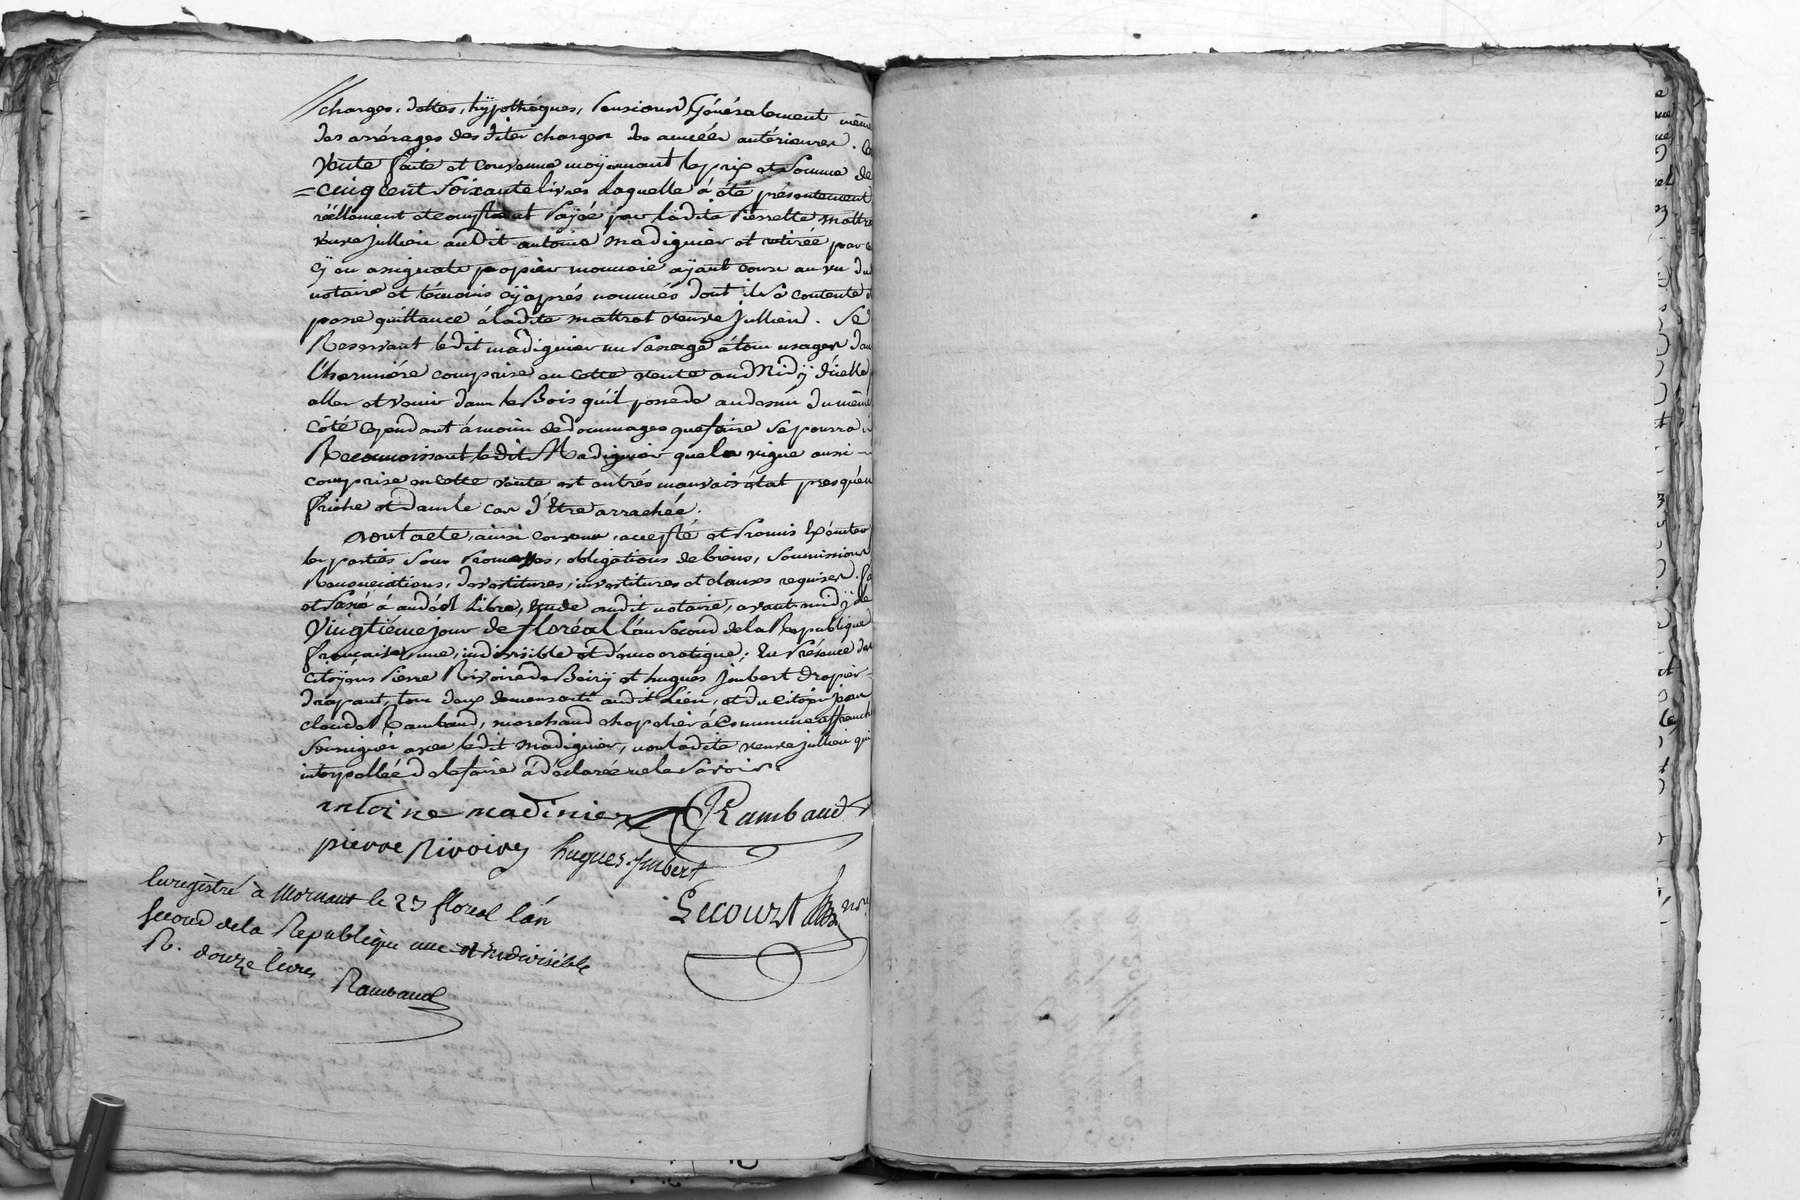 charges, dettes, hypothéques, Pensions Généralement même
des arrérages des dites charges des années antérieures.
Vente faite et convenue moÿennant le prix et somme de
= cinq cent soixante livres laquelle à été présentement
réèllement et Payée par ladite Pierrette mattra
veuve jullien audit antoine madignier et retirée par
cÿ en assignats papier monnoie aÿant cours au vu du
notaire et témoins cÿ aprés nommés dont il se contente
passe quittance à ladite mattrat veuve jullien. Se
Reservant ledit madignier un Passage à tous usages dans
l'hermiére comprise en cette vente au Midÿ d'icelle
aller et venir dans le Bois qu'il possede au dessus du même
côté cependant à moins de dommages que faire se pourra
Reconnoissant ledit Madignier que la vigne aussi
comprise en cette vente est en trés mauvais état presqu'en
friche et dans le cas d'être arrachée.
dont acte, ainsi convenu, accepté et Promis Exécuter
les parties sous Promesses, obligations de biens, Soumissions
Renonciations, devestitures, investitures et clauses requises.
et Passé à andéol Libre, Etude dudit notaire, avant midÿ le
Vingtiéme jour de floréal l'an Second de la Republique
française une, indivisible et démocratique; En Présence des
citoÿens Pierre Rivoire de et hugues joubert drapier
drapant, tous deux demeurants audit Lieu, et du citoÿen jean
claude Rambaud, marchand chapelier à Commune affranchie
Soussignés avec ledit madignier, non ladite veuve jullien qui
interpellée de le faire à déclarée ne le Savoir.
antoine madinier Rambaud
pierre Rivoire hugues
Enregistré à Mornant le 23 floreal l'an
second de la Republique une et indivisible
R. douze livres
Rambaud
Lecourt nore